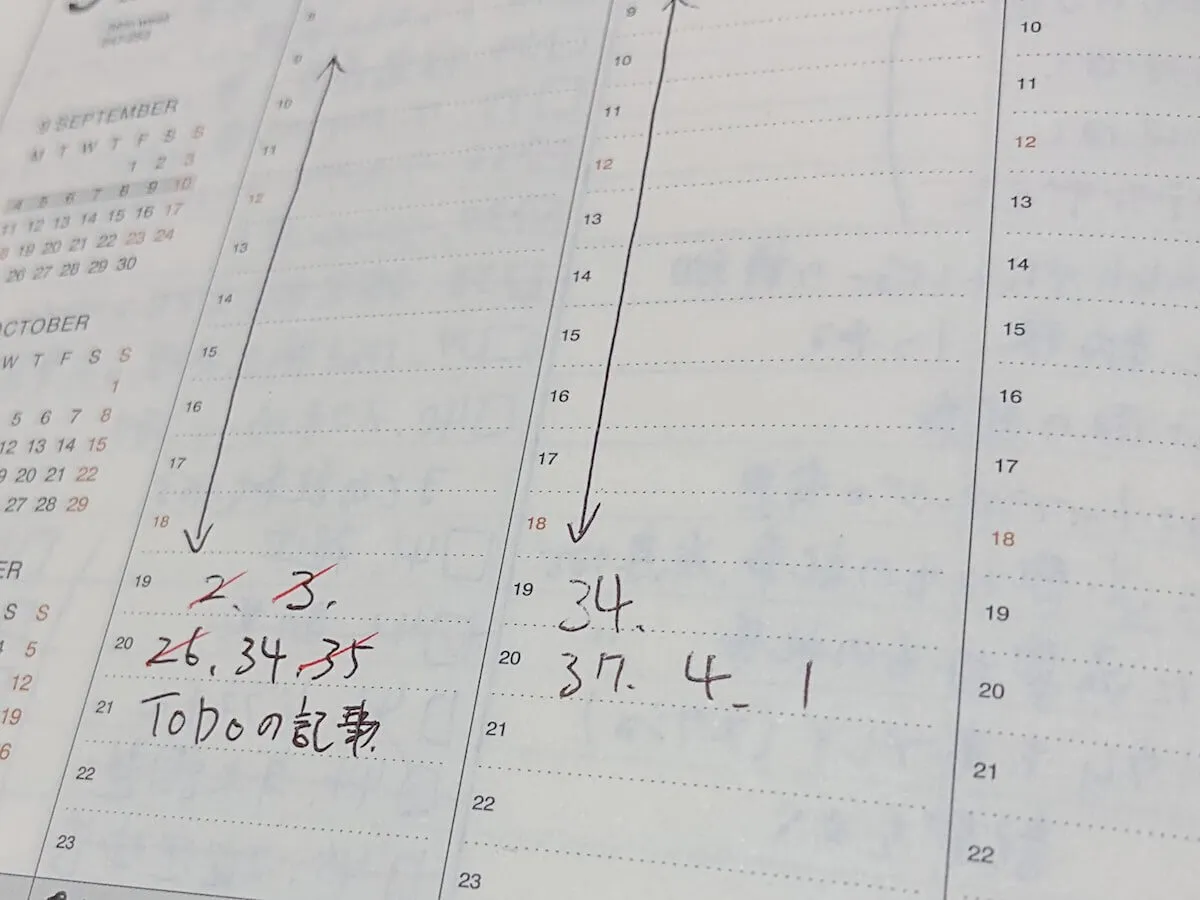 9 SEPTEMBER
M T W T F S S
1 2 3
4 5 6 7 8 9 10
11 12 13 14 15 16 17
19 20 21 22 23 24
26 27 28 29 30
OCTOBER
W T F S S
1
5 6 7 8
12 13 14 15
20 21 22
27 28 29
ER
S S
5
12
19
6
8
9
10
11
12
13
14
15
16
17
18
19 2. 3.
20 26. 34. 35
21 ToDoの記事
22
23
9
10
11
12
13
14
15
16
17
18
19 34.
20 37. 4. 1
21
22
23
10
11
12
13
14
15
16
17
18
19
20
21
22